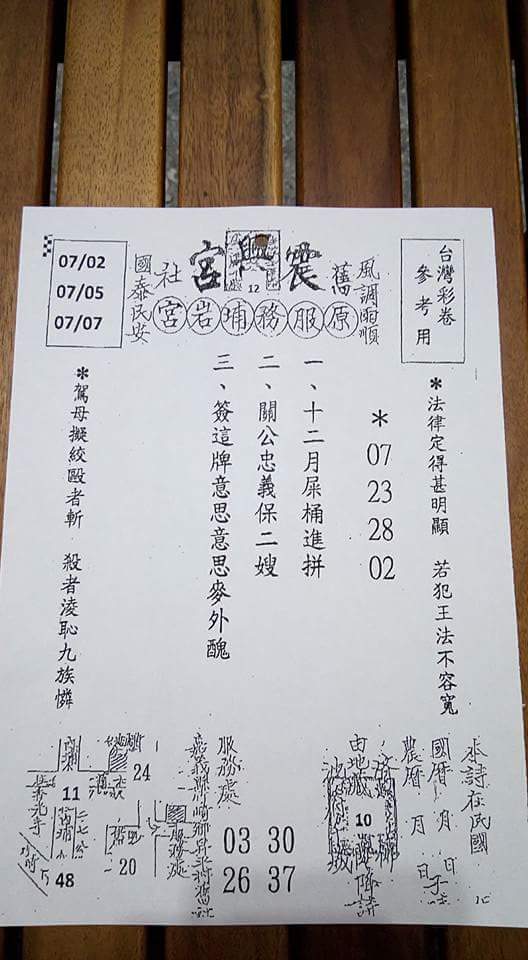 台灣彩卷
參考用
風調雨順
舊
震興宮
12
社
國泰民安
原服務埔岩宮
07/02
07/05
07/07
*法律定得甚明顯 若犯王法不容寬
*
07
23
28
02
一、十二月屎桶進拼
二、關公忠義保二嫂
三、簽這牌意思意思麥外醜
*駕母擬絞毆者斬 殺者淩恥九族憐
本詩在民國
國曆 月 日
農曆 月 日
由地藏
10
服務處
03 30
26 37
24
11
20
48